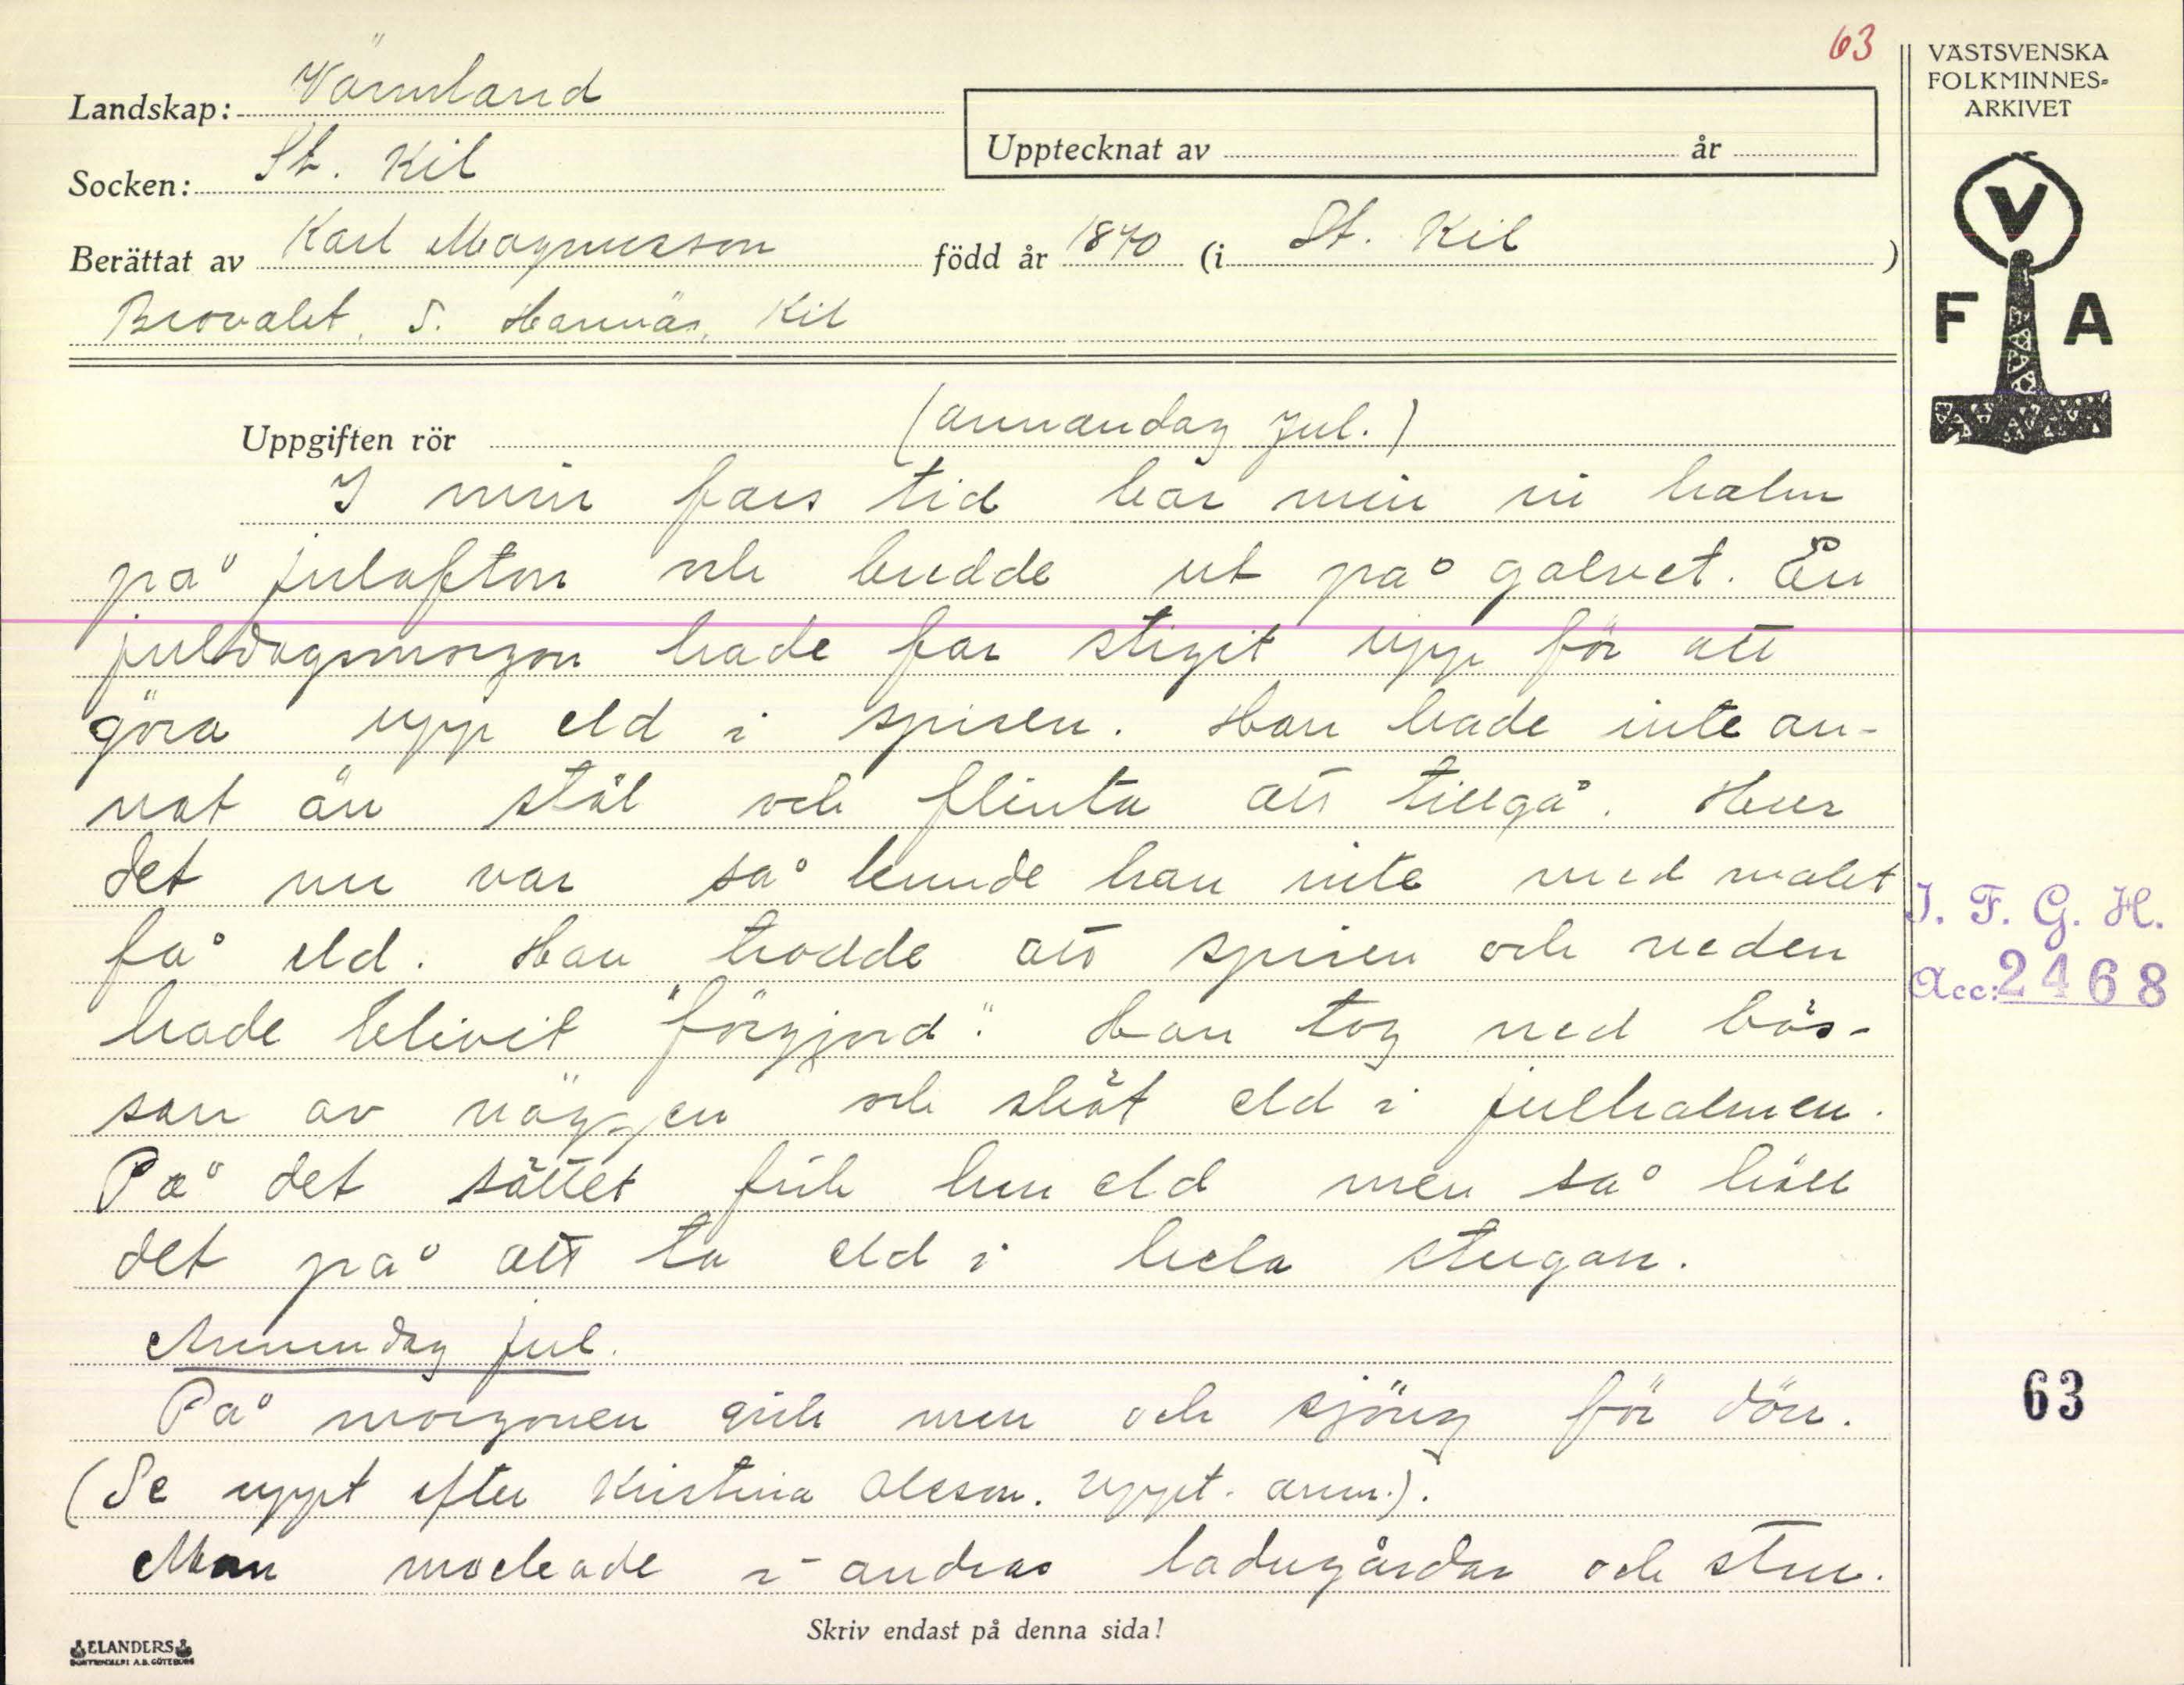 63
VÄSTSVENSKA
FOLKMINNES-
ARKIVET
Landskap: Värmland
Upptecknat av år
Socken: St. Kil
Berättat av Karl Magnusson född år 1870 (i St. Kil)
Brovalet, S. Hannäs, Kil
V
F A
Uppgiften rör (annandag Jul.)
I min fars tid bar min in halm
på julafton och bredde ut på golvet. En
juldagsmorgon hade far stigit upp för att
göra upp eld i spisen. Han hade inte an-
nat än stål och flinta att tillgå. Hur
det nu var så kunde han inte med
få eld. Han trodde att spisen och veden
hade blivit "förgjord". Han tog ned bös-
san av väggen och sköt eld i julhalmen.
På det sättet fick han eld men så höll
det på att ta eld i hela stugan.
Annandag jul.
På morgonen gick men och sjöng för dörr.
(Se uppt efter Kristina Olsson. Uppt. anm.).
Man mockade i andras ladugårdar och stru.
I. F. G. H.
Acc: 2468
63
Skriv endast på denna sida!
ELANDERS
BOKTRYCKERI A.B. GÖTEBORG